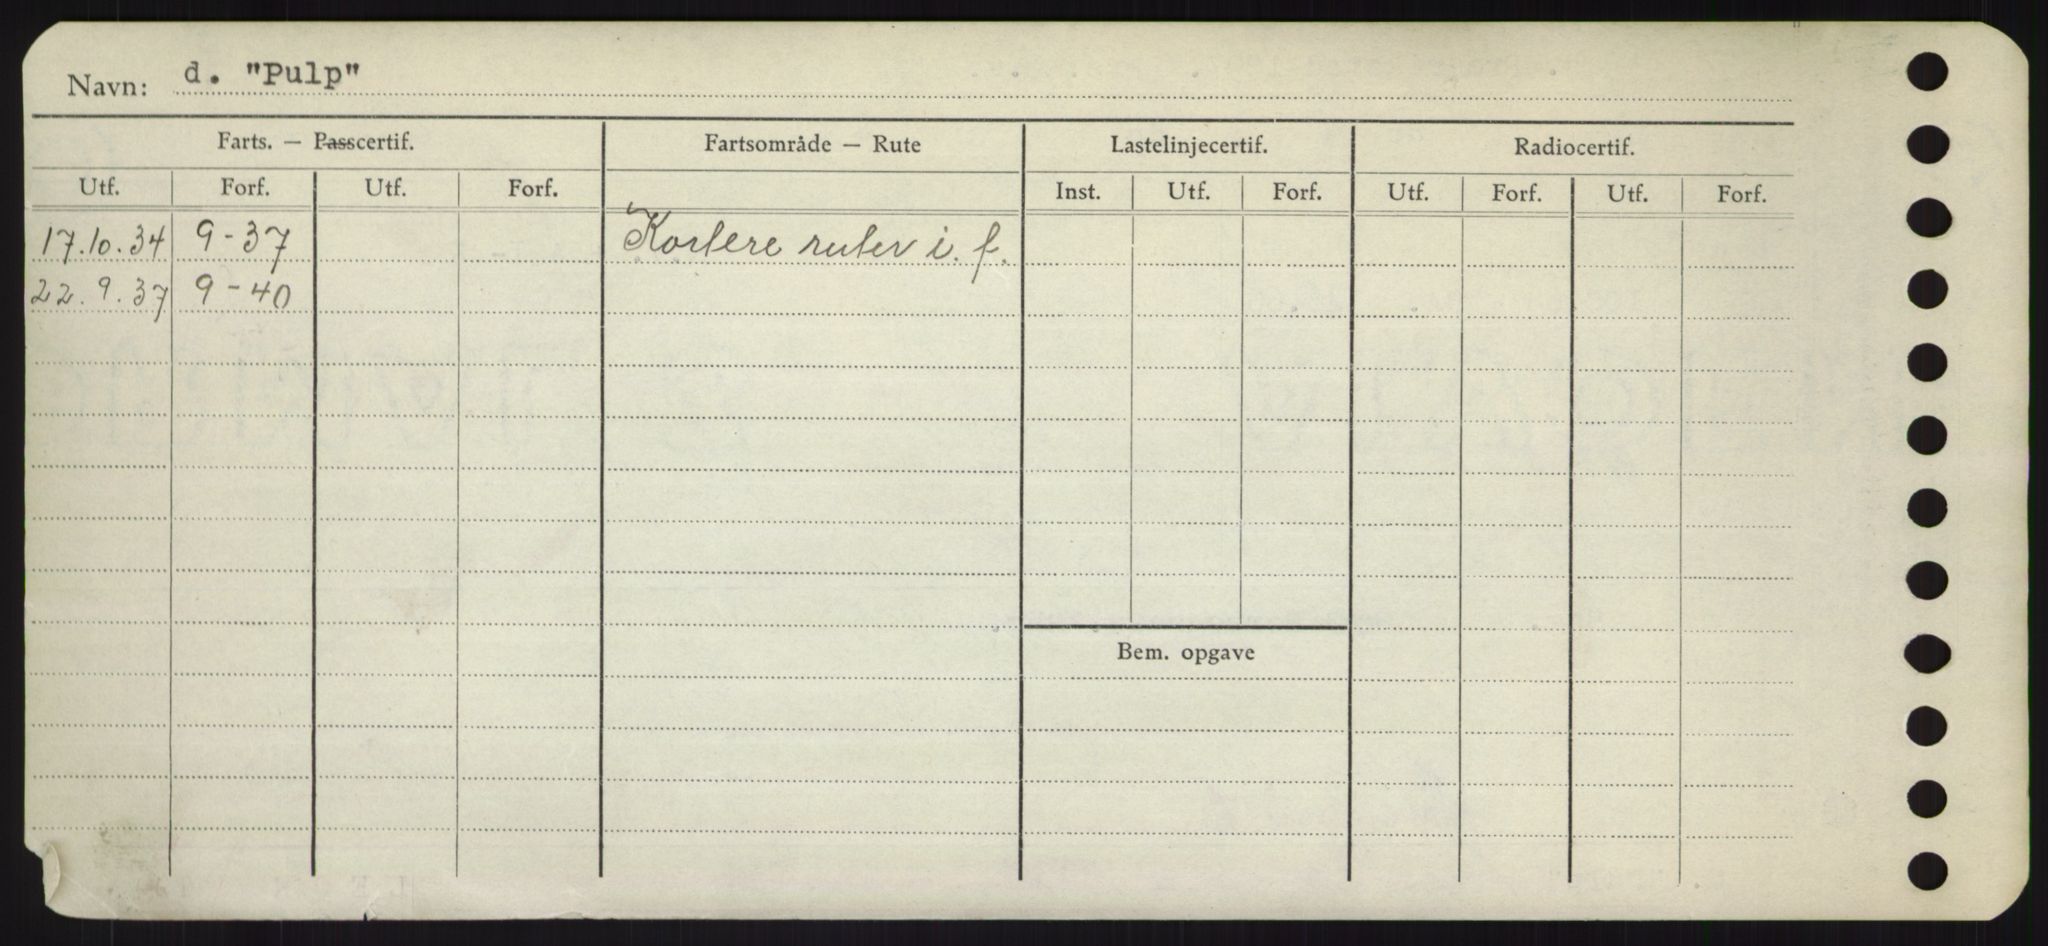 Navn: d. "Pulp"
Farts. — Passcertif. Fartsområde — Rute Lastelinjecertif. Radiocertif.
Utf. Forf. Utf. Forf. Inst. Utf. Forf. Utf. Forf. Utf. Forf.
17.10.34 9-37 Kortere ruter i. f.
22.9.37 9-40
Bem. opgave